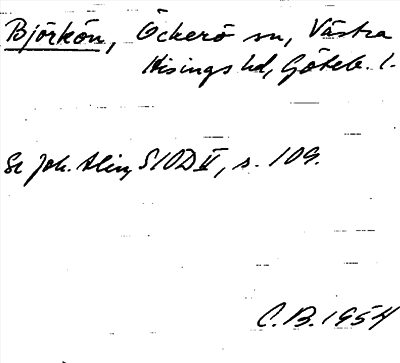 Björkön, Öckerö sn, Västra
Hisings hd, Göteb. l.
Se Joh. Alin, SIOD II, s. 109.
C.B. 1954